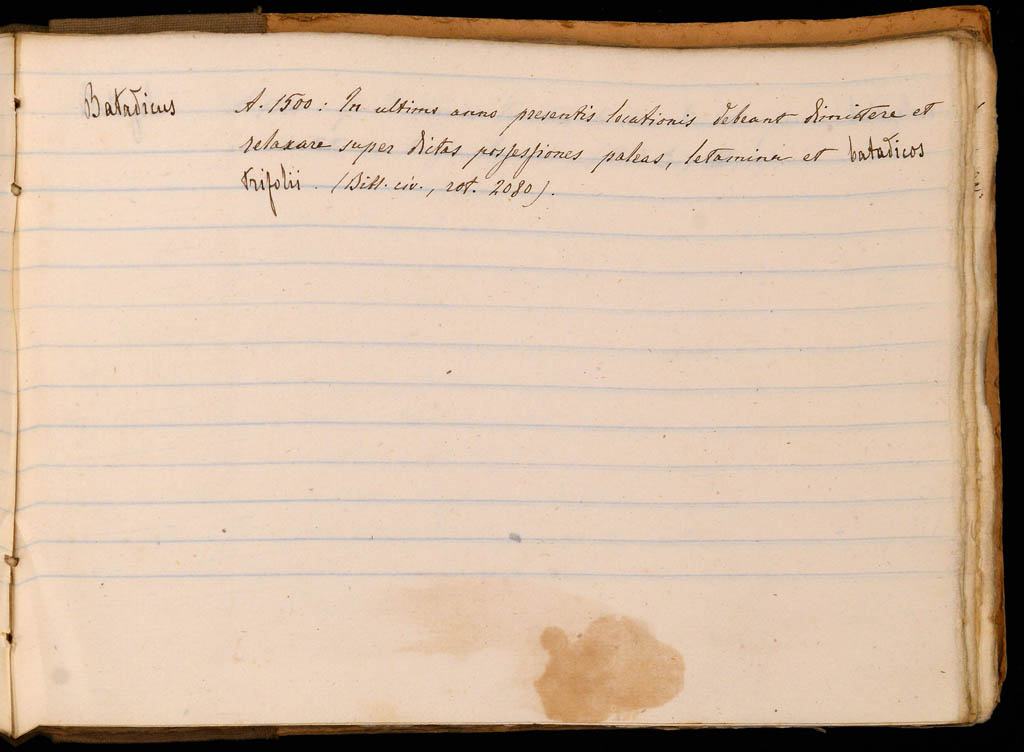 Batadicus A. 1500: In ultimo anno presentis locationis debeant dimittere et
relaxare super dictas possessiones paleas, letamina et batadicos
trifolii. (Bibl. civ., rot. 2080).